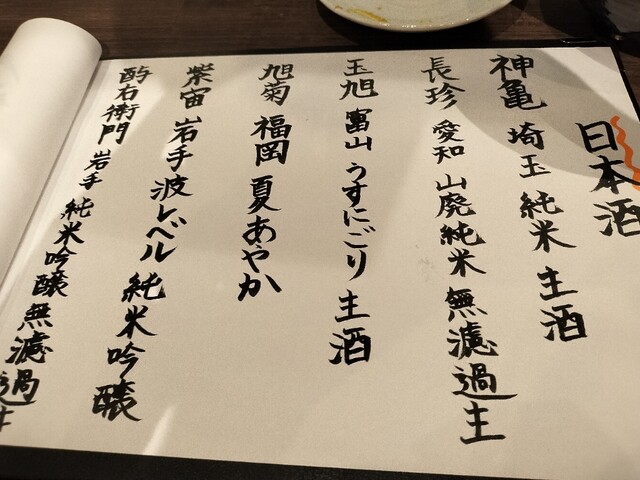 日本酒
神亀 埼玉 純米 生酒
長珍 愛知 山廃純米 無濾過生
玉旭 富山 うすにごり 生酒
旭菊 福岡 夏あやか
紫宙 岩手 波レベル 純米吟醸
酉与右衛門 岩手 純米吟醸 無濾過生